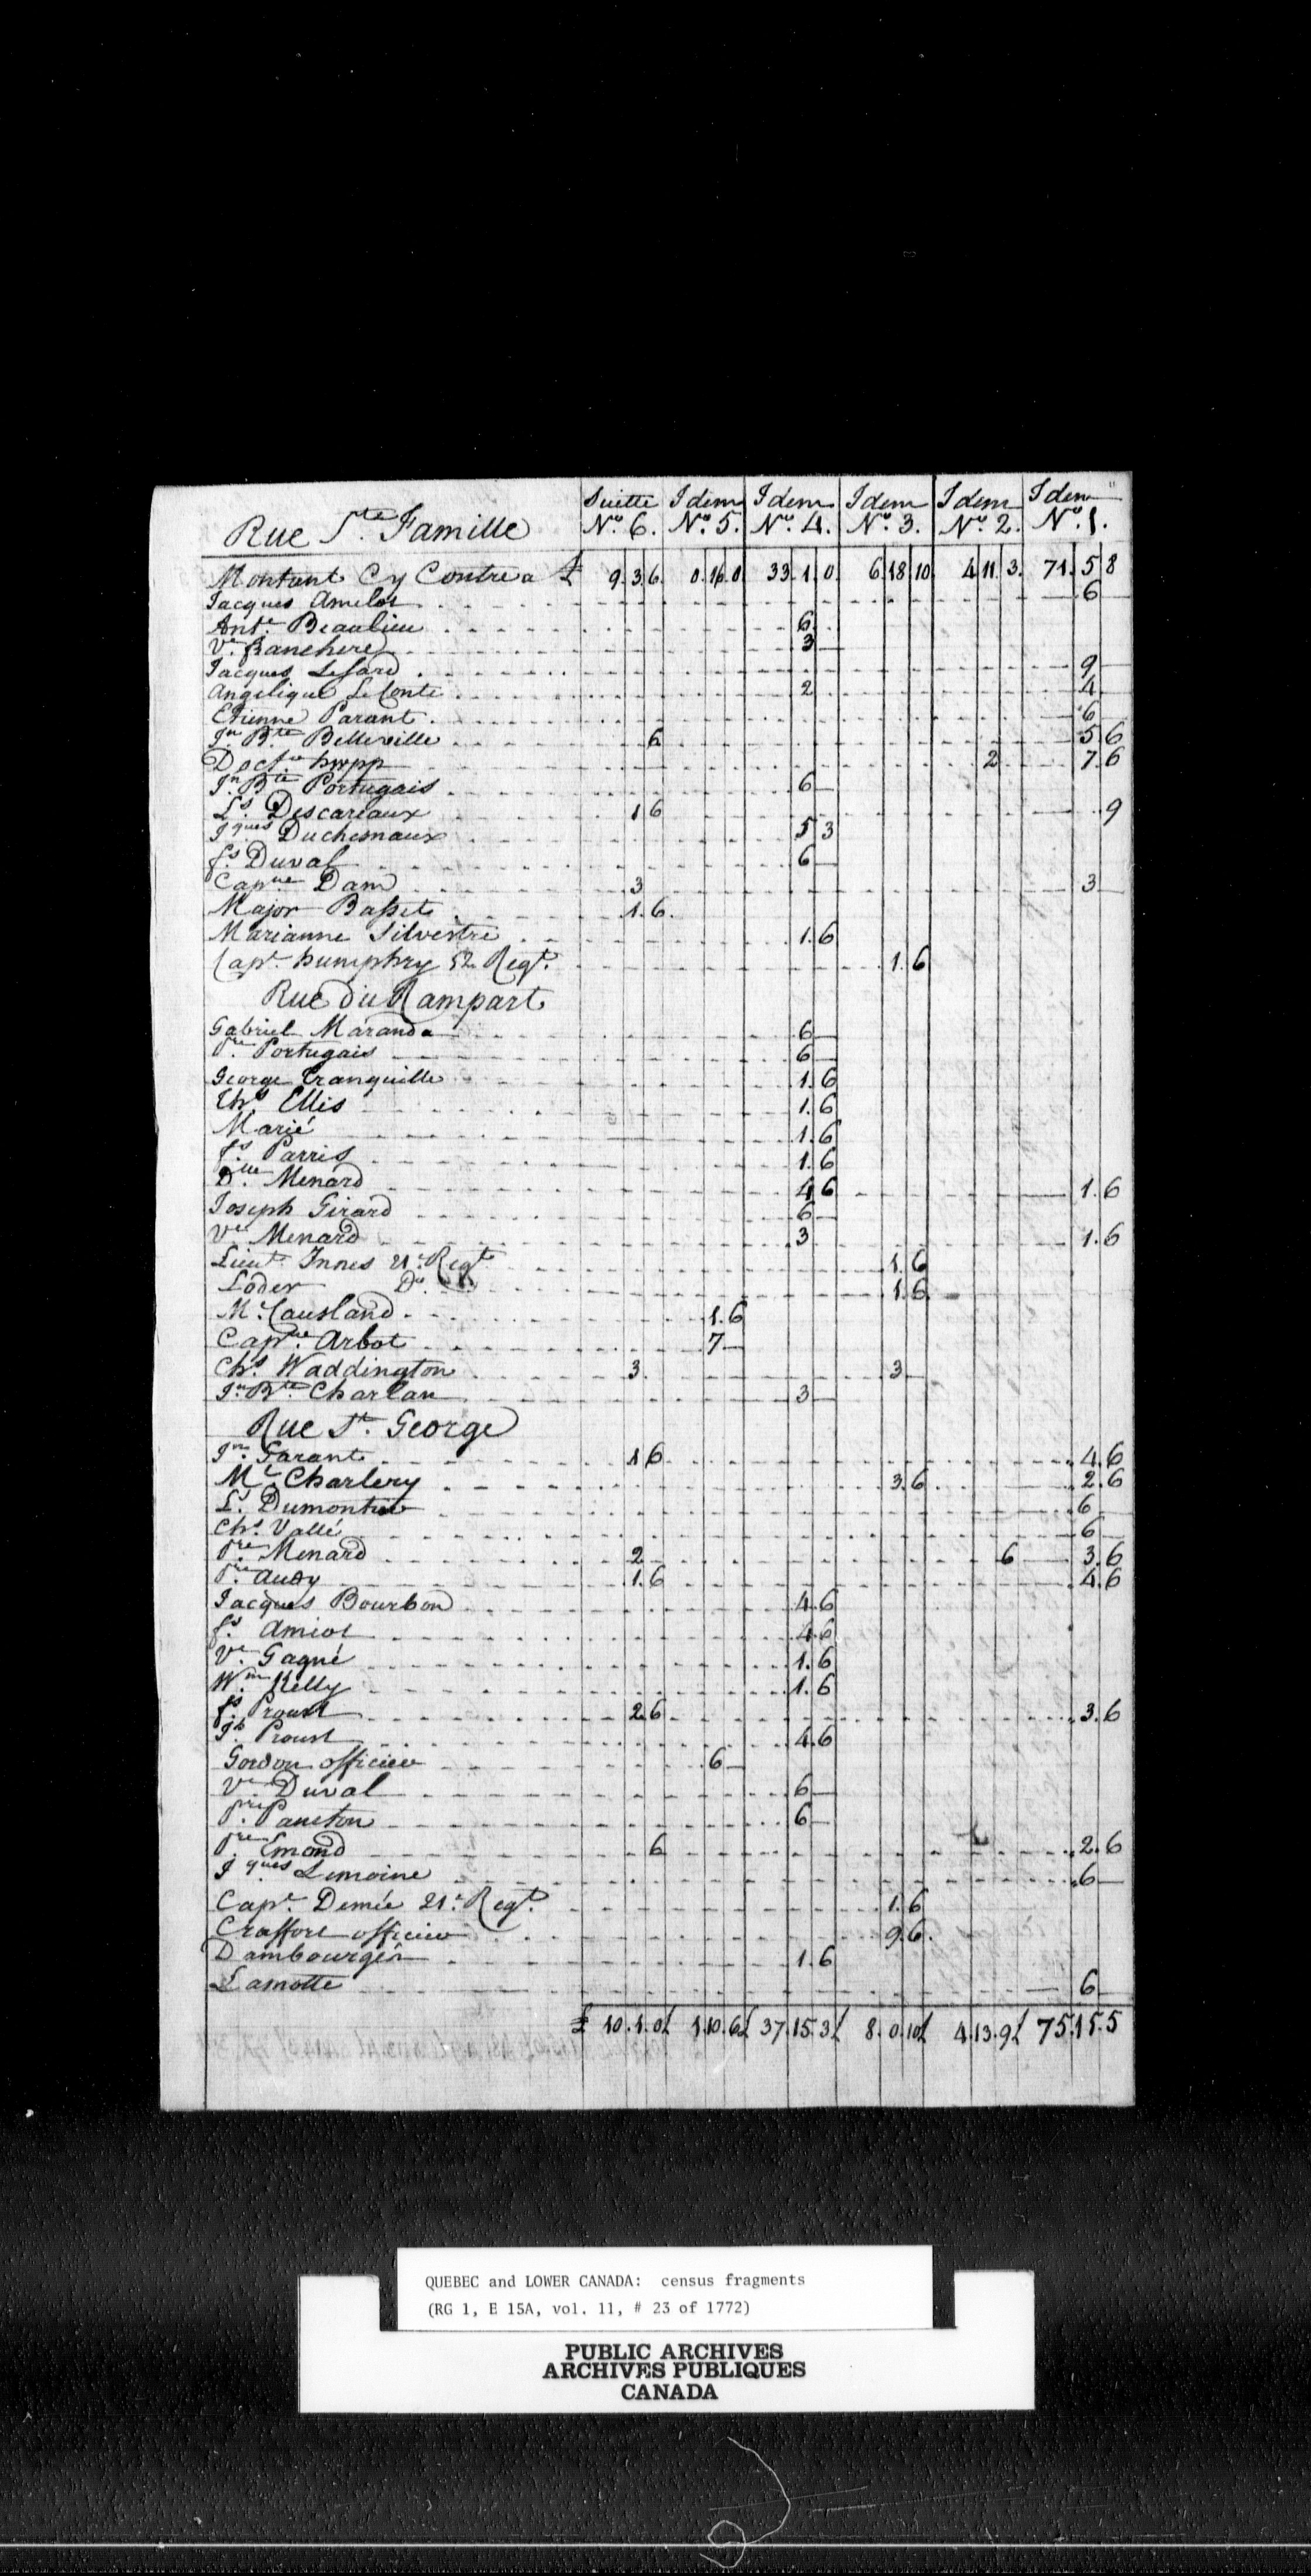 Suitte Idem Idem Idem Idem Idem
Rue Ste. Famille No. 6. No. 5. No. 4. No. 3. No. 2. No. 1.
Montant Cy Contre a £ 9. 3. 6. 0. 16. 0 33. 1. 0. 6. 18. 10 4. 11. 3. 71. 5 8
Jacques Amelot 6
Ante. Beaulieu 6
Ve. Banchere 3
Jacques Lesard 9
Angelique LeConte 2 4
Etienne Parant 6
Jn. Bte. Belleville 6 5 6
Doctr. 2 7 6
Jn. Bte. Portugais 6
Ls. Descareaux 1 6 9
Jques Duchesnaux 5 3
fs. Duval 6
Capne. Dam 3 3
Major Basset 1. 6.
Marianne Silvestre 1. 6
Capt. humphry 52 Regt. 1. 6
Rue du Rampart
Gabriel Maranda 6
Pre. Portugais 6
George Tranquille 1. 6
Ths. Ellis 1. 6
Marié 1. 6
fs. Parris 1. 6
Dlle. Menard 4 6 1. 6
Joseph Girard 6
Ve. Menard 3 1. 6
Lieut. Innes 21e. Regt. 1. 6
Loder Do. 1. 6
Mc.Causland 1. 6
Capne. Arbot 7
Chs. Waddington 3 3
Jn. Bte. Charlan 3
Rue St. George
Jn. Garant 1 6 4. 6
Mr. Charlery 3. 6 2. 6
Ls. Dumontier 6
Chs. Vallé 6
Pre. Menard 2 6 3. 6
Pre. Audy 1. 6 4. 6
Jacques Bourbon 4. 6
fs. Amiot 4. 6
Ve. Gagné 1. 6
Wm. Kelly 1. 6
fs. Proust 2 6 3. 6
Js. Proust 4. 6
Gordon officier 6
Ve. Duval 6
Pre. Paneton 6
Pre. Emond 6 2. 6
Jques Lemoine 6
Capt. Demée 21e. Regt. 1. 6
Craffort officier 9 6.
Dambourgés 1. 6
Lamotte 6
£ 10. 1. 0 1. 10. 6 37. 15. 3 8. 0. 10 4. 13. 9 75. 15. 5
QUEBEC and LOWER CANADA: census fragments
(RG 1, E 15A, vol. 11, # 23 of 1772)
PUBLIC ARCHIVES
ARCHIVES PUBLIQUES
CANADA